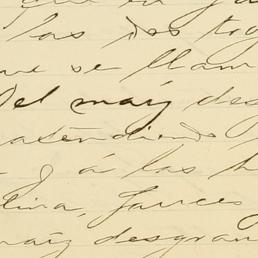 que en
las dos
ue se llam
Del maíz des
atendiendo
y á las h
lina, Jauces
maíz desgran